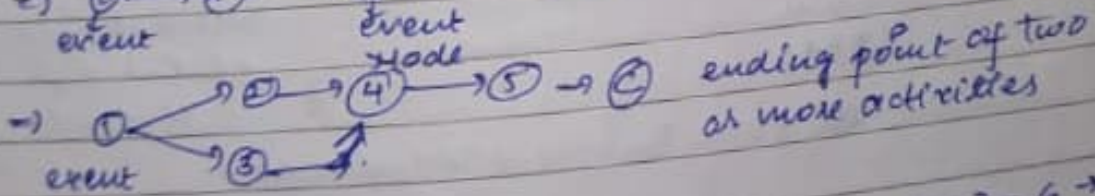 event
Event
Node
→) ① → ② → ④ → ⑤ → ⑥ ending point of two
③ or more activities
event